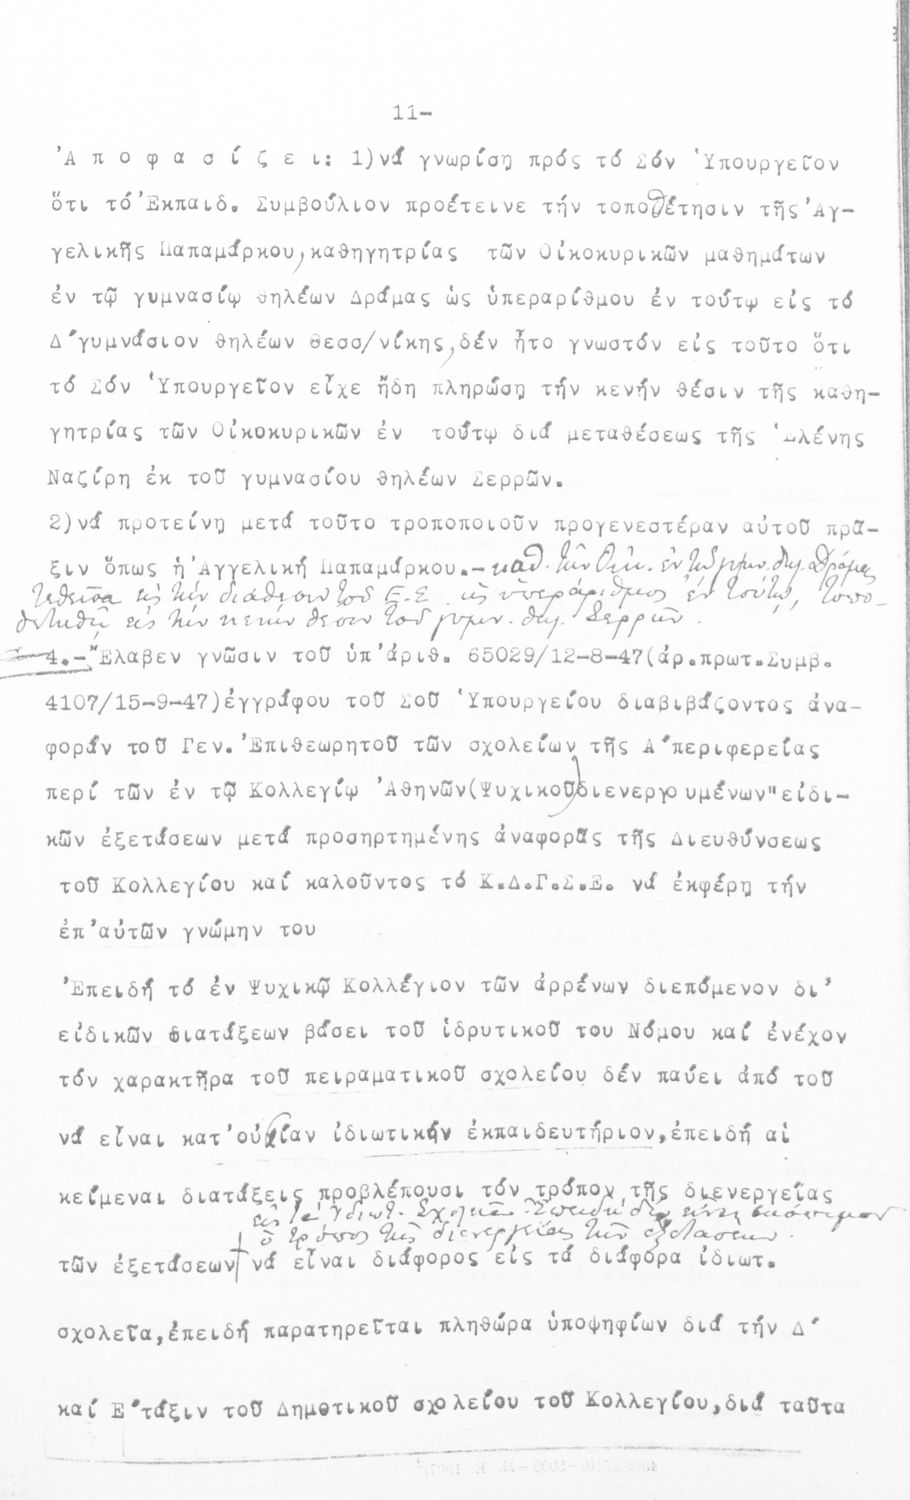 11-
Ἀ π ο φ α σ ί ζ ε ι: 1)νά γνωρίσῃ πρός τό Σόν Ὑπουργεῖον
ὅτι τό Ἐκπαιδ. Συμβούλιον προέτεινε τήν τοποθέτησιν τῆς Ἀγ-
γελικῆς Παπαμάρκου,καθηγητρίας τῶν Οἰκοκυρικῶν μαθημάτων
ἐν τῷ γυμνασίῳ θηλέων Δράμας ὡς ὑπεραρίθμου ἐν τούτῳ εἰς τό
Δ΄γυμνάσιον θηλέων Θεσσ/νίκης,δέν ἦτο γνωστόν εἰς τοῦτο ὅτι
τό Σόν Ὑπουργεῖον εἶχε ἤδη πληρώσῃ τήν κενήν θέσιν τῆς καθη-
γητρίας τῶν Οἰκοκυρικῶν ἐν τούτῳ διά μεταθέσεως τῆς Ἑλένης
Ναζίρη ἐκ τοῦ γυμνασίου θηλέων Σερρῶν.
2)νά προτείνῃ μετά τοῦτο τροποποιοῦν προγενεστέραν αὐτοῦ πρᾶ-
ξιν ὅπως ἡ Ἀγγελική Παπαμάρκου.- καθ. τῶν Οἰκ. ἐν τῷ γυμν. θηλ. Δράμας
τεθεῖσα εἰς τήν διάθεσιν τοῦ Ε.Σ. ὡς ὑπεράριθμος ἐν τούτῳ, τοπο-
θετηθῇ εἰς τήν κενήν θέσιν τοῦ γυμν. θηλ. Σερρῶν.
4.-Ἔλαβεν γνῶσιν τοῦ ὑπ'ἀριθ. 65029/12-8-47(ἀρ.πρωτ.Συμβ.
4107/15-9-47)ἐγγράφου τοῦ Σοῦ Ὑπουργείου διαβιβάζοντος ἀνα-
φοράν τοῦ Γεν. Ἐπιθεωρητοῦ τῶν σχολείων τῆς Α΄περιφερείας
περί τῶν ἐν τῷ Κολλεγίῳ Ἀθηνῶν(Ψυχικοῦ)διενεργουμένων"εἰδι-
κῶν ἐξετάσεων μετά προσηρτημένης ἀναφορᾶς τῆς Διευθύνσεως
τοῦ Κολλεγίου καί καλοῦντος τό Κ.Δ.Γ.Σ.Ε. νά ἐκφέρῃ τήν
ἐπ'αὐτῶν γνώμην του
Ἐπειδή τό ἐν Ψυχικῷ Κολλέγιον τῶν ἀρρένων διεπόμενον δι'
εἰδικῶν διατάξεων βάσει τοῦ ἱδρυτικοῦ του Νόμου καί ἐνέχον
τόν χαρακτῆρα τοῦ πειραματικοῦ σχολείου δέν παύει ἀπό τοῦ
νά εἶναι κατ'οὐσίαν ἰδιωτικήν ἐκπαιδευτήριον,ἐπειδή αἱ
κείμεναι διατάξεις προβλέπουσι τόν τρόπον τῆς διενεργείας
εἰς τά Ἰδιωτ. Σχολεῖα Ἐπειδή δέν εἶναι σκόπιμον
ὁ τρόπος τῆς διενεργείας τῶν ἐξετάσεων
τῶν ἐξετάσεων νά εἶναι διάφορος εἰς τά διάφορα ἰδιωτ.
σχολεῖα,ἐπειδή παρατηρεῖται πληθώρα ὑποψηφίων διά τήν Δ΄
καί Ε΄τάξιν τοῦ Δημοτικοῦ σχολείου τοῦ Κολλεγίου,διά ταῦτα